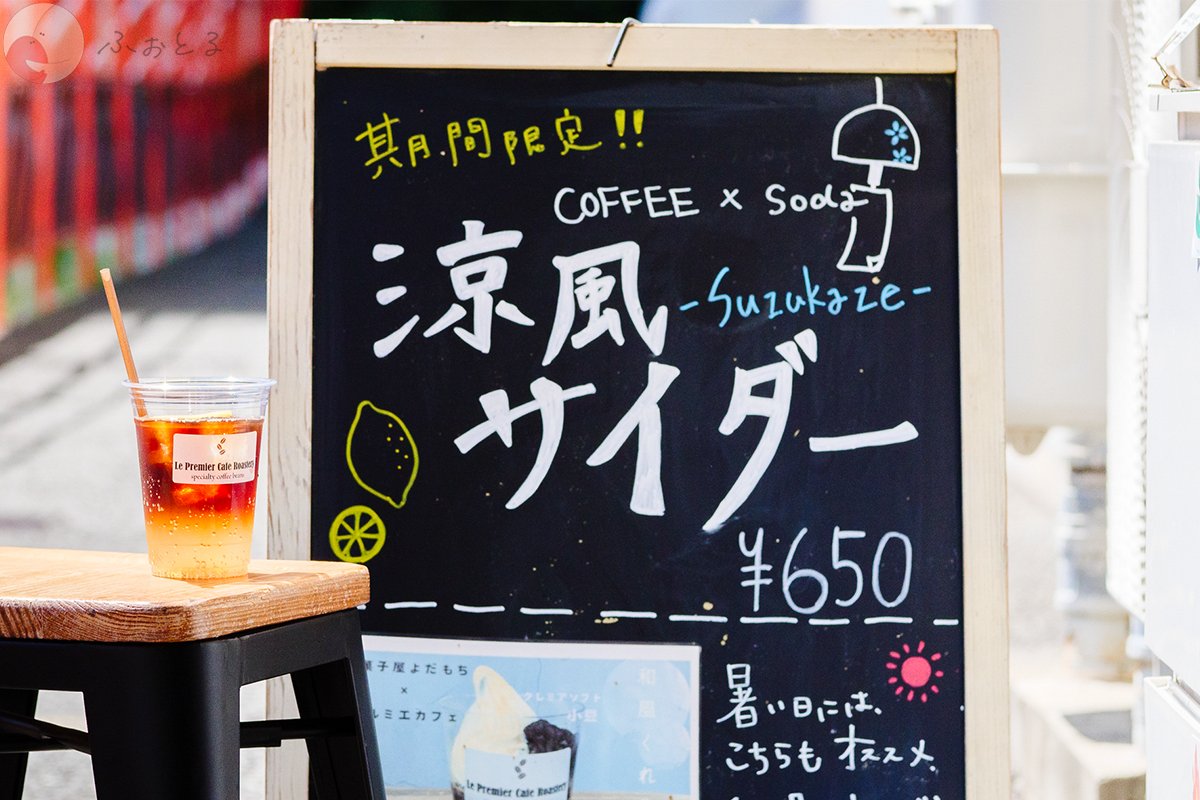 ふぉとる
期間限定!!
COFFEE × Soda
涼風
-Suzukaze-
サイダー
¥650
Le Premier Cafe Roastery
specialty coffee beans
菓子屋よだもち
×
ルミエカフェ
クレミアソフト
小豆
和風くれ
Le Premier Cafe Roastery
暑い日には、
こちらも オススメ